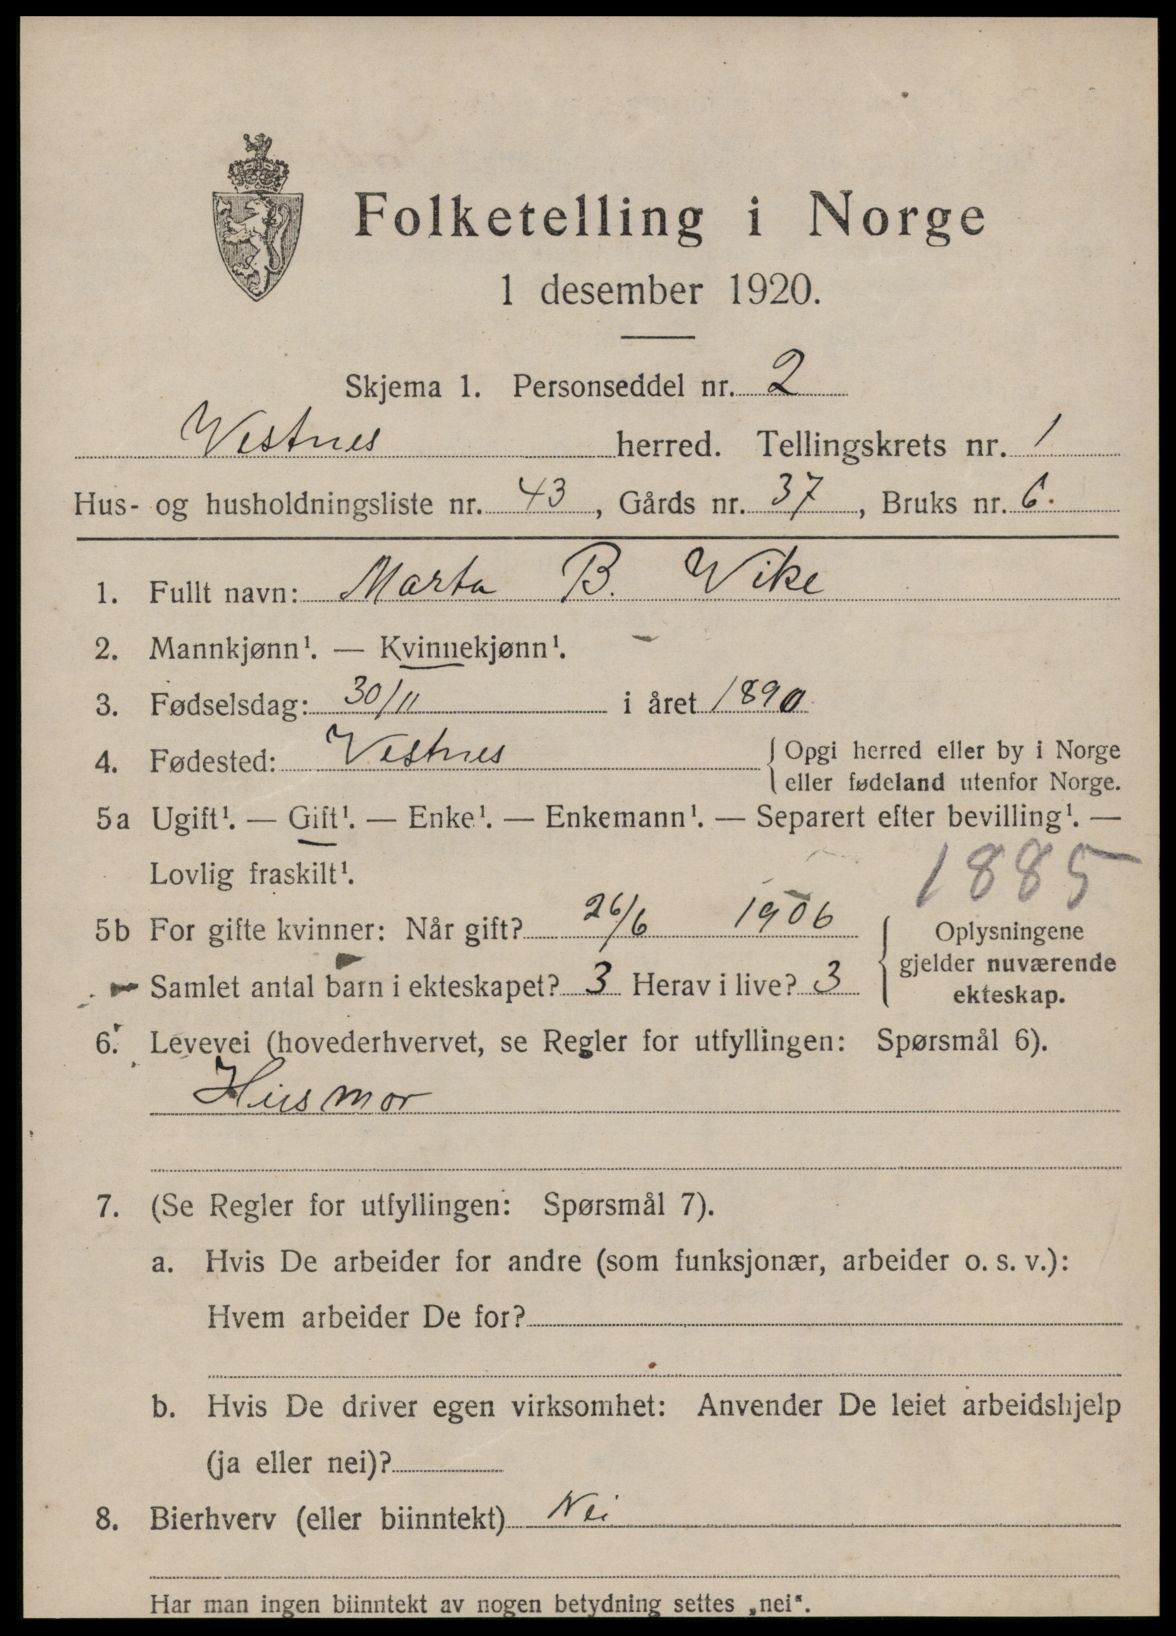 Folketelling i Norge
1 desember 1920.
Skjema 1. Personseddel nr. 2
Vestnes herred. Tellingskrets nr. 1
Hus- og husholdningsliste nr. 43, Gårds nr. 37, Bruks nr. 6.
1. Fullt navn: Marta B. Wike
2. Mannkjønn¹. — Kvinnekjønn¹.
3. Fødselsdag: 30/11 i året 1890
4. Fødested: Vestnes {Opgi herred eller by i Norge
eller fødeland utenfor Norge.
5a Ugift¹. — Gift¹. — Enke¹. — Enkemann¹. — Separert efter bevilling¹. —
Lovlig fraskilt¹.
1885
5b For gifte kvinner: Når gift? 26/6 1906
Samlet antal barn i ekteskapet? 3 Herav i live? 3
{Oplysningene
gjelder nuværende
ekteskap.
6. Levevei (hovederhvervet, se Regler for utfyllingen: Spørsmål 6).
Husmor
7. (Se Regler for utfyllingen: Spørsmål 7).
a. Hvis De arbeider for andre (som funksjonær, arbeider o. s. v.):
Hvem arbeider De for?
b. Hvis De driver egen virksomhet: Anvender De leiet arbeidshjelp
(ja eller nei)?
8. Bierhverv (eller biinntekt) Nei
Har man ingen biinntekt av nogen betydning settes „nei".